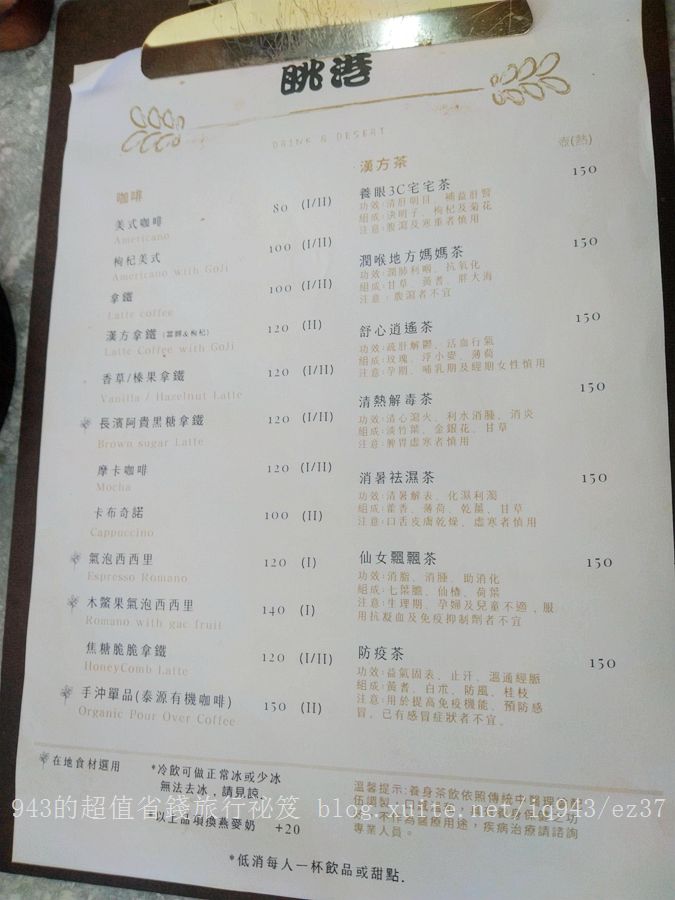 眺港
DRINK & DESERT
咖啡
美式咖啡 80 (I/H)
Americano
枸杞美式 100 (I/H)
Americano with GoJi
拿鐵 100 (I/H)
Latte coffee
漢方拿鐵 (當歸&枸杞) 120 (H)
Latte Coffee with GoJi
香草/榛果拿鐵 120 (I/H)
Vanilla / Hazelnut Latte
長濱阿貴黑糖拿鐵 120 (I/H)
Brown sugar Latte
摩卡咖啡 120 (I/H)
Mocha
卡布奇諾 100 (H)
Cappuccino
氣泡西西里 120 (I)
Espresso Romano
木鱉果氣泡西西里 140 (I)
Romano with gac fruit
焦糖脆脆拿鐵 120 (I/H)
HoneyComb Latte
手沖單品(泰源有機咖啡) 150 (H)
Organic Pour Over Coffee
漢方茶 壺(熱)
養眼3C宅宅茶 150
功效:清肝明目、補益肝腎
組成:決明子、枸杞及菊花
注意:腹瀉及寒重者慎用
潤喉地方媽媽茶 150
功效:潤肺利咽、抗氧化
組成:甘草、黃耆、胖大海
注意:腹瀉者不宜
舒心逍遙茶 150
功效:疏肝解鬱、活血行氣
組成:玫瑰、浮小麥、薄荷
注意:孕期、哺乳期及經期女性慎用
清熱解毒茶 150
功效:清心瀉火、利水消腫、消炎
組成:淡竹葉、金銀花、甘草
注意:脾胃虛寒者慎用
消暑祛濕茶 150
功效:清暑解表、化濕利濁
組成:藿香、薄荷、乾薑、甘草
注意:口舌皮膚乾燥、虛寒者慎用
仙女飄飄茶 150
功效:消脂、消腫、助消化
組成:七葉膽、仙楂、荷葉
注意:生理期、孕婦及兒童不適,服
用抗凝血及免疫抑制劑者不宜
防疫茶 150
功效:益氣固表、止汗、溫通經脈
組成:黃耆、白朮、防風、桂枝
注意:用於提高免疫機能、預防感
冒。已有感冒症狀者不宜。
在地食材選用
*冷飲可做正常冰或少冰
無法去冰,請見諒.
*以上品項換燕麥奶 +20
溫馨提示:養身茶飲依照傳統中醫理論
專業人員。
疾病治療請諮詢
*低消每人一杯飲品或甜點.
943的超值省錢旅行祕笈 blog.xuite.net/lq943/ez37